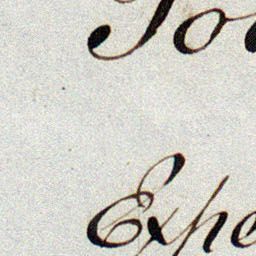 To
Expe